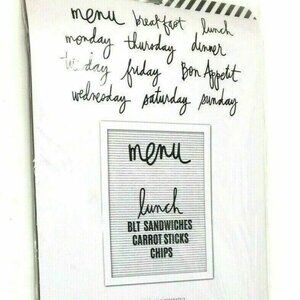 menu breakfast lunch
monday thursday dinner
tuesday friday Bon Appetit
wednesday saturday sunday
menu
lunch
BLT SANDWICHES
CARROT STICKS
CHIPS